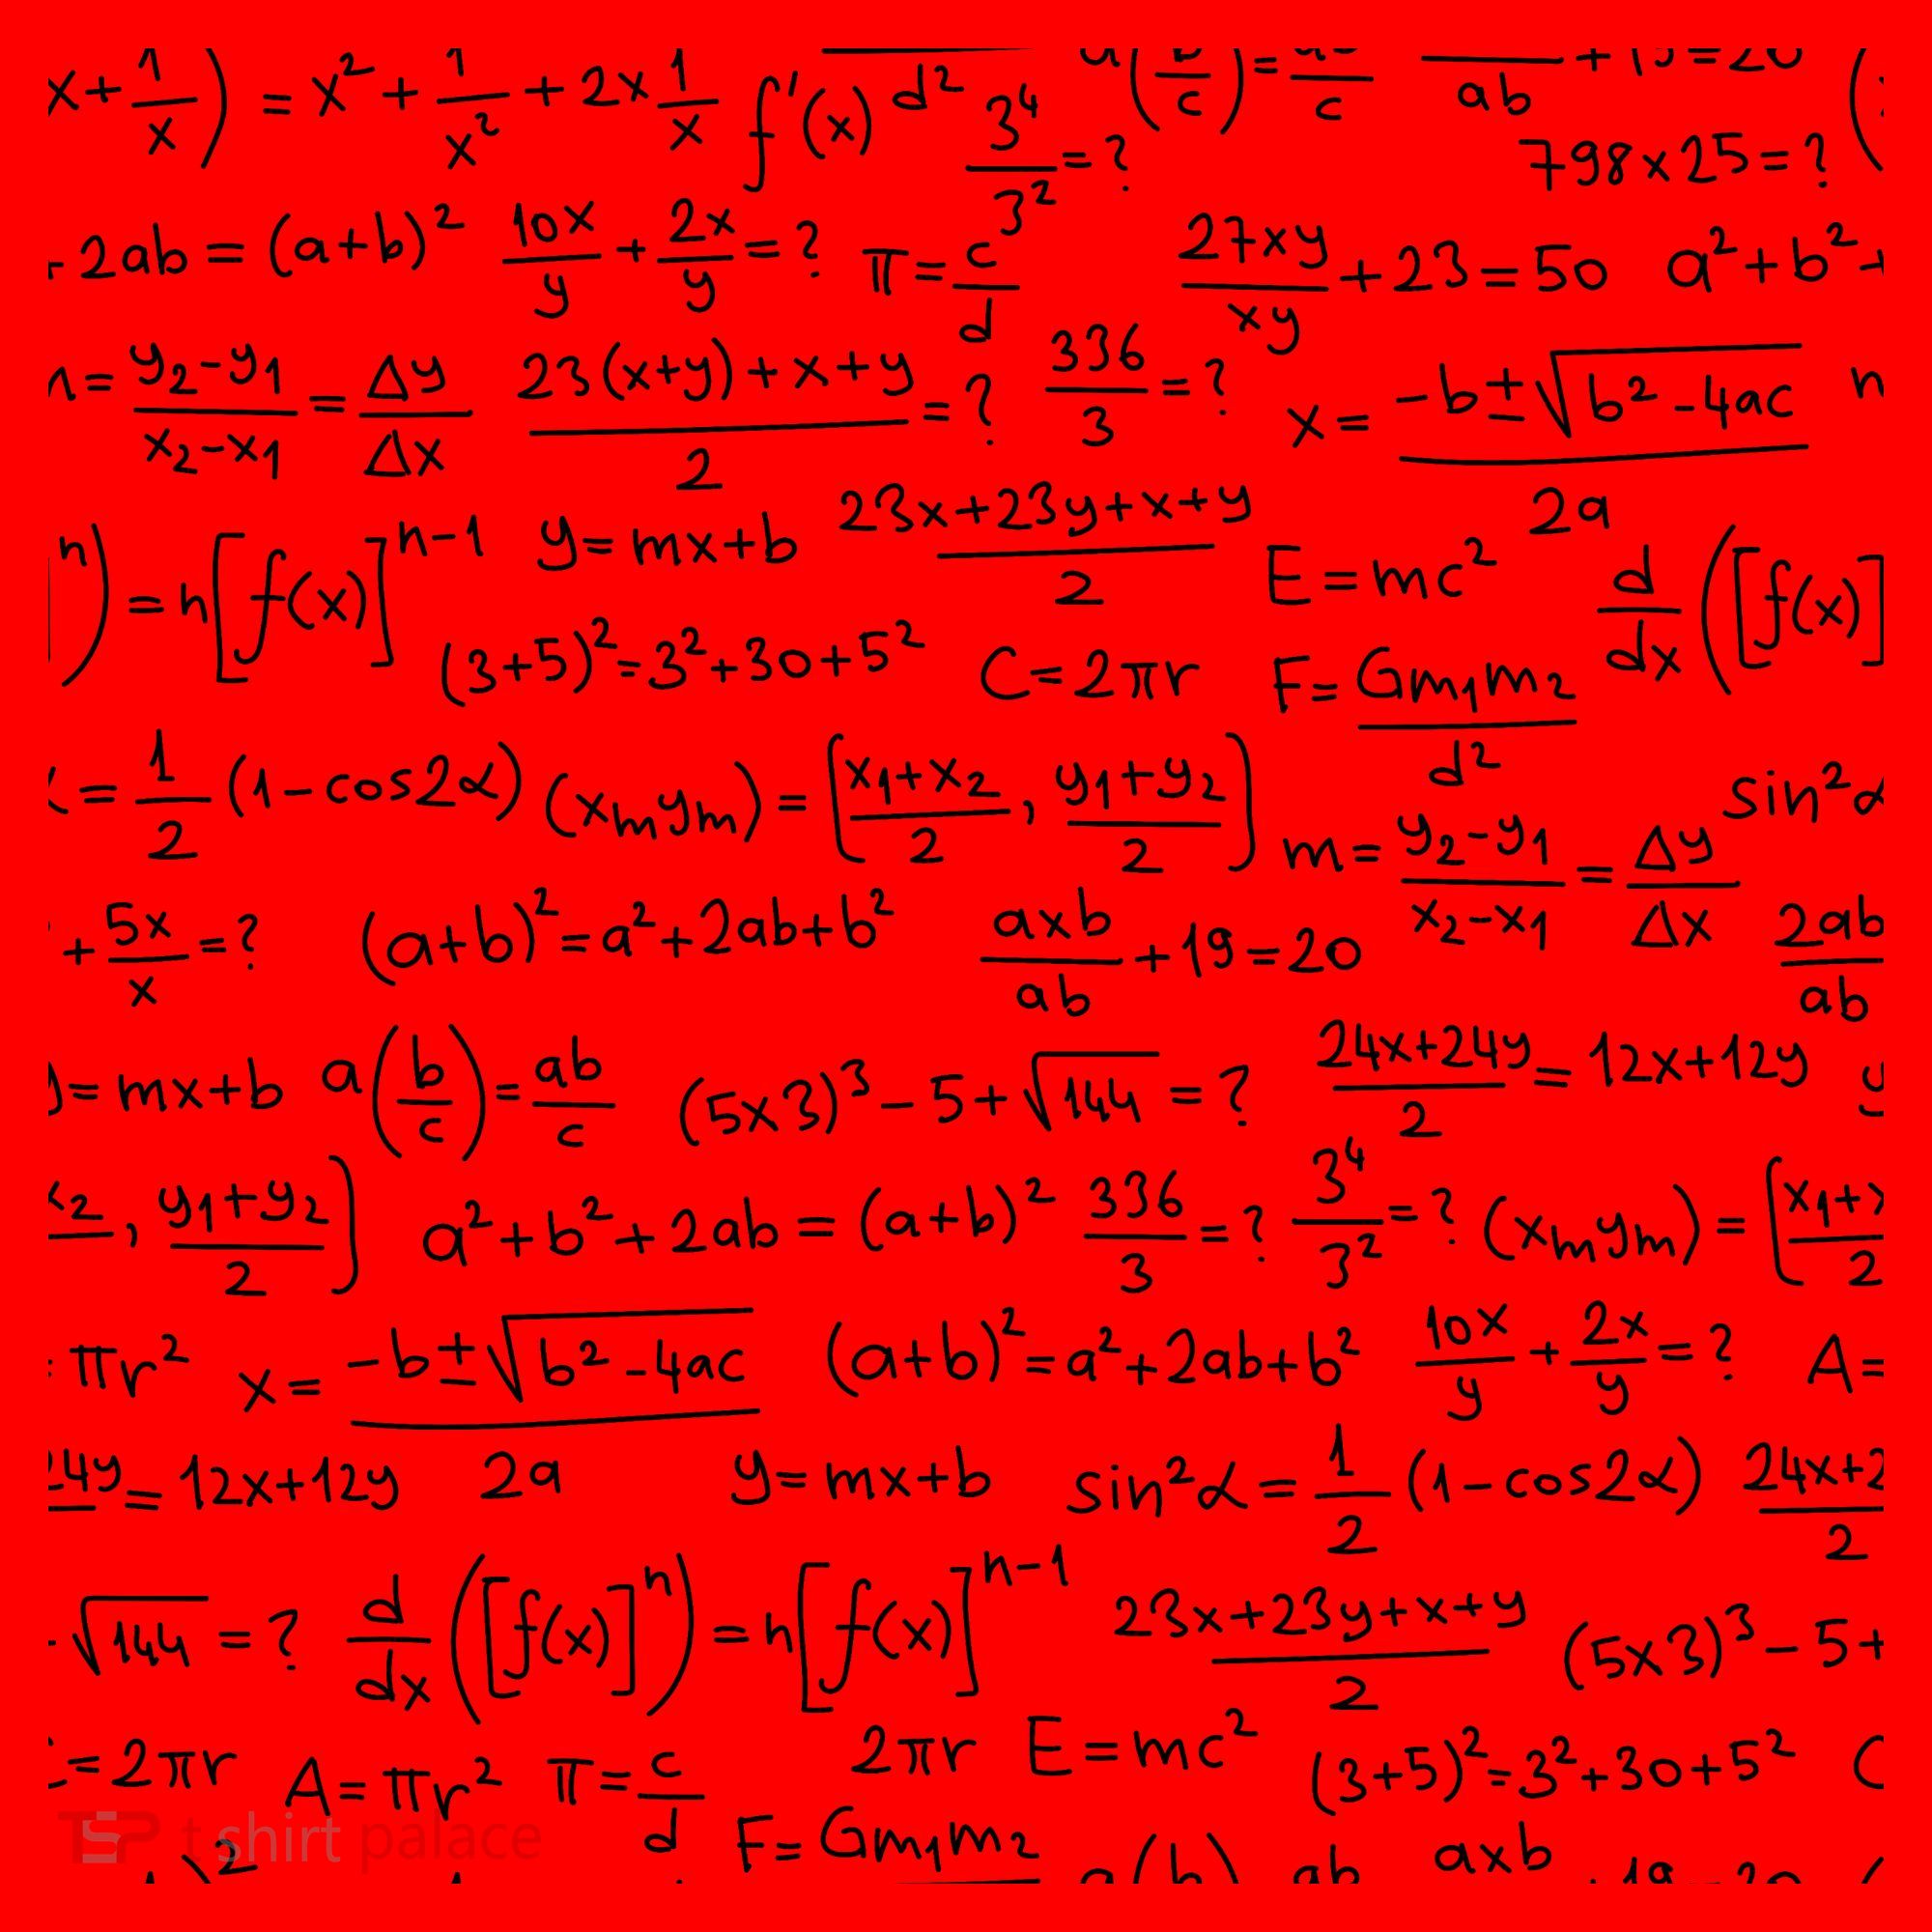 x + 1/x ) = x² + 1/x² + 2x 1/x f'(x) d² 3⁴/3² = ? a(b/c) = ab/c /ab + 19 = 20
798 x 25 = ?
2ab = (a+b)² 10x/y + 2x/y = ? π = c/d 27xy/xy + 23 = 50 a² + b² +
= y₂-y₁/x₂-x₁ = Δy/Δx 23(x+y)+x+y/2 = ? 336/3 = ? x = -b±√b²-4ac/2a
n) = n[f(x)]ⁿ⁻¹ y = mx+b 23x+23y+x+y/2 E = mc² d/dx ([f(x)]
(3+5)² = 3²+30+5² C = 2πr F = Gm₁m₂/d²
= 1/2 (1-cos2α) (xₘyₘ) = [x₁+x₂/2, y₁+y₂/2] m = y₂-y₁/x₂-x₁ = Δy/Δx sin²α
+ 5x/x = ? (a+b)² = a²+2ab+b² axb/ab + 19 = 20 2ab/ab
= mx+b a(b/c) = ab/c (5x3)³ - 5 + √144 = ? 24x+24y/2 = 12x+12y y
₂, y₁+y₂/2] a²+b²+2ab = (a+b)² 336/3 = ? 3⁴/3² = ? (xₘyₘ) = [x₁+x/2
πr² x = -b±√b²-4ac/2a (a+b)² = a²+2ab+b² 10x/y + 2x/y = ? A =
24y = 12x+12y y = mx+b sin²α = 1/2 (1-cos2α) 24x+2/2
√144 = ? d/dx ([f(x)]ⁿ) = n[f(x)]ⁿ⁻¹ 23x+23y+x+y/2 (5x3)³ - 5 +
= 2πr A = πr² π = c/d 2πr E = mc² (3+5)² = 3²+30+5² C
TSP t shirt palace
F = Gm₁m₂ a(b) ab axb 19 = 20